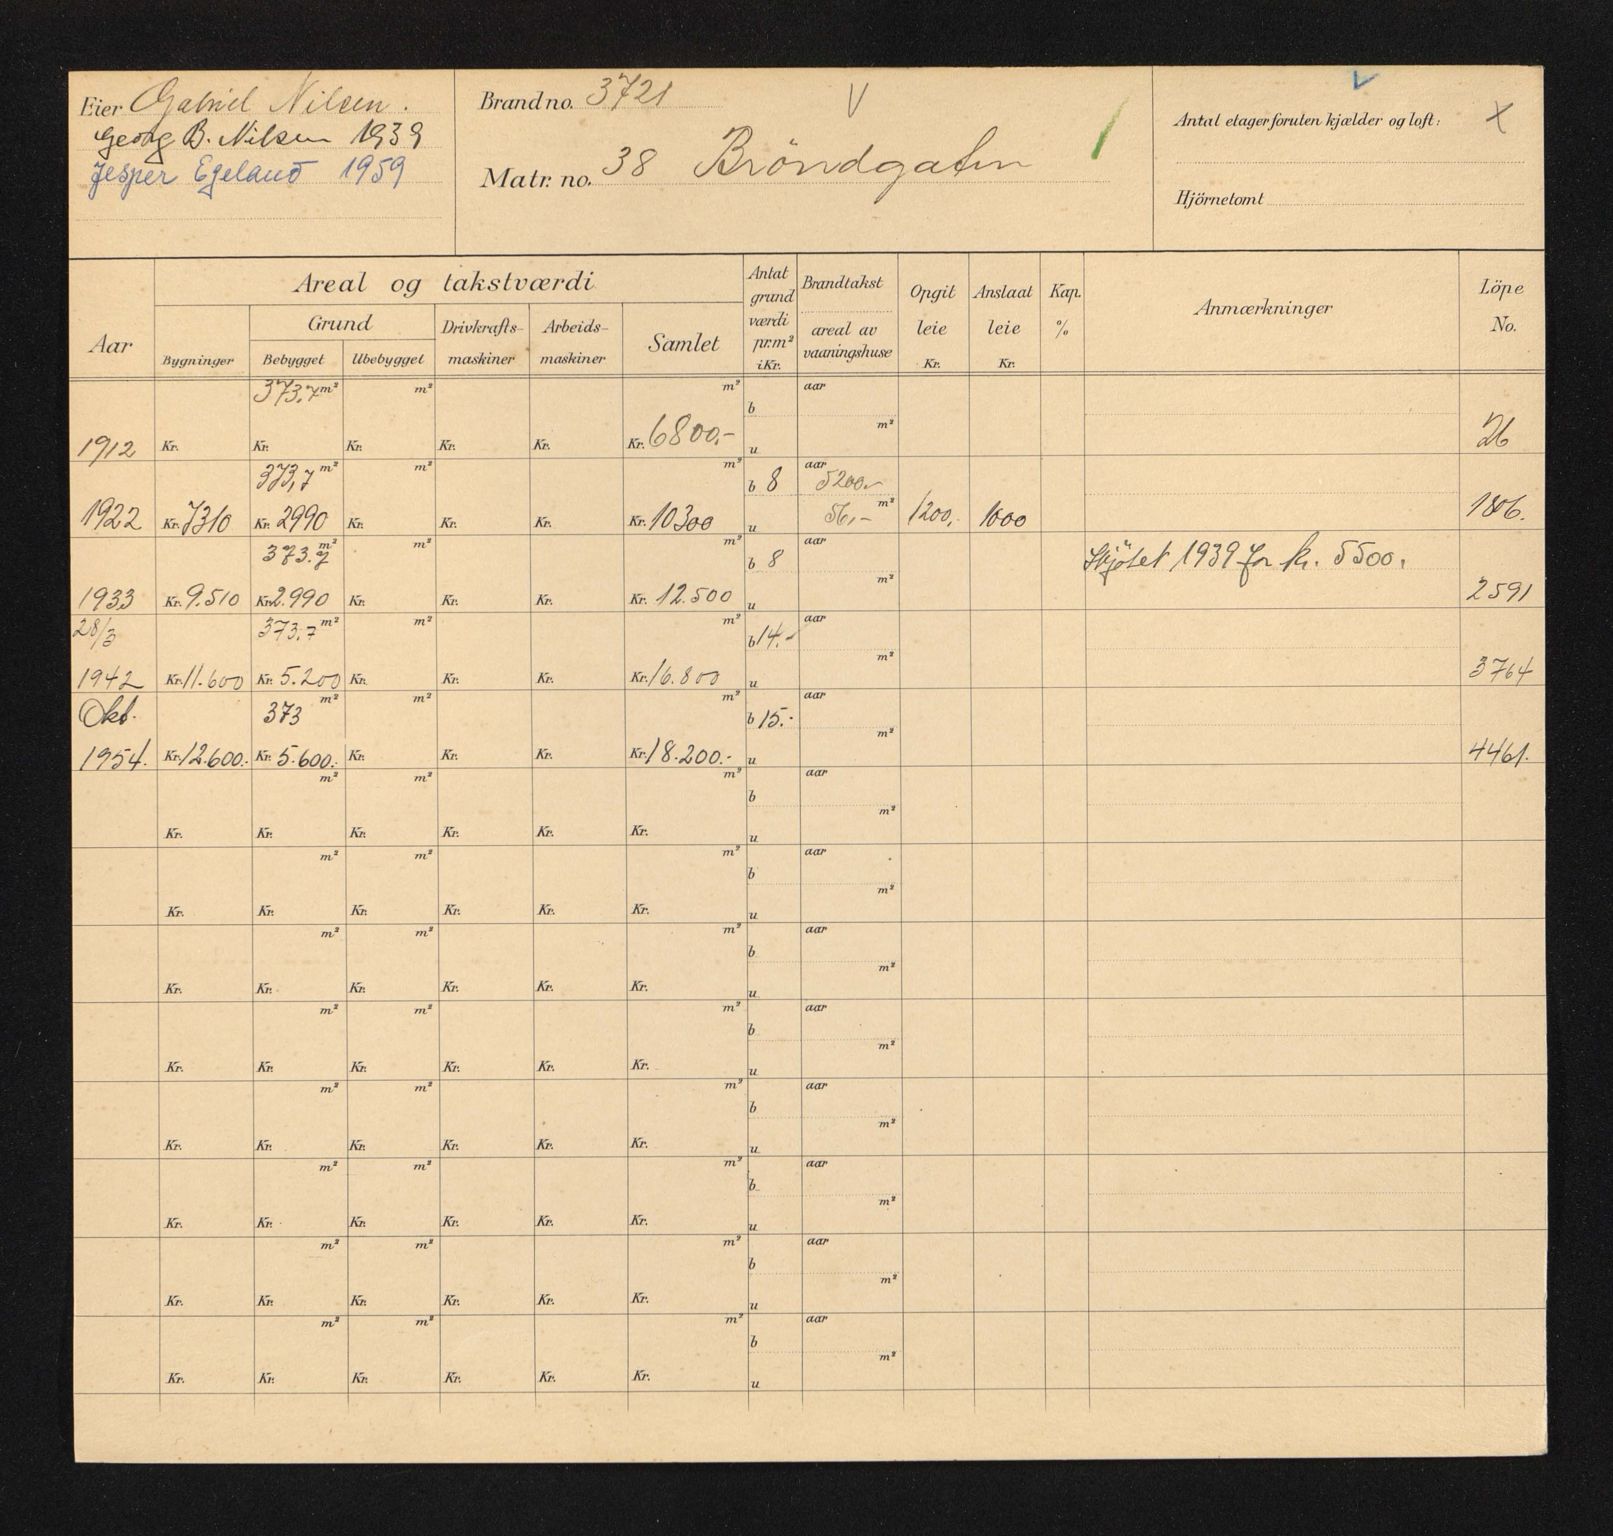 Eier Gabriel Nilsen.
Georg B. Nilsen 1939
Jesper Egeland 1959
Brand no. 3721 V
Matr. no. 38 Bröndgaten
Antal etager foruten kjælder og loft: X
Hjörnetomt
Aar
Areal og takstværdi
Bygninger
Grund
Bebygget
Ubebygget
Drivkrafts-
maskiner
Arbeids-
maskiner
Samlet
Antat
grund
værdi
pr.m²
i Kr.
Brandtakst
areal av
vaaningshuse
Opgit
leie
Kr.
Anslaat
leie
Kr.
Kap.
%
Anmærkninger
Löpe
No.
373.7 m² m² m² b aar
m²
1912 Kr. Kr. Kr. Kr. Kr. Kr. 6800.- u 26
373,7 m² m² m² b 8 aar 5200.-
1922 Kr. 7310 Kr. 2990 Kr. Kr. Kr. Kr. 10300 u 56,- m² 1200,- 1000 1806.
373.7 m² m² m² b 8 aar Skjötet 1939 for kr. 5500.
m²
1933 Kr. 9.510 Kr. 2.990 Kr. Kr. Kr. Kr. 12.500 u 2591
28/3 373.7 m² m² m² b 14.- aar
m²
1942 Kr. 11.600 Kr. 5.200 Kr. Kr. Kr. Kr. 16.800 u 3764
Okt. 373 m² m² m² b 15.- aar
m²
1954. Kr. 12.600.- Kr. 5.600.- Kr. Kr. Kr. Kr. 18.200.- u 4461.
m² m² m² aar
b m²
Kr. Kr. Kr. Kr. Kr. Kr. u
m² m² m² aar
b m²
Kr. Kr. Kr. Kr. Kr. Kr. u
m² m² m² aar
b m²
Kr. Kr. Kr. Kr. Kr. Kr. u
m² m² m² aar
b m²
Kr. Kr. Kr. Kr. Kr. Kr. u
m² m² m² aar
b m²
Kr. Kr. Kr. Kr. Kr. Kr. u
m² m² m² aar
b m²
Kr. Kr. Kr. Kr. Kr. Kr. u
m² m² m² aar
b m²
Kr. Kr. Kr. Kr. Kr. Kr. u
m² m² m² aar
b m²
Kr. Kr. Kr. Kr. Kr. Kr. u